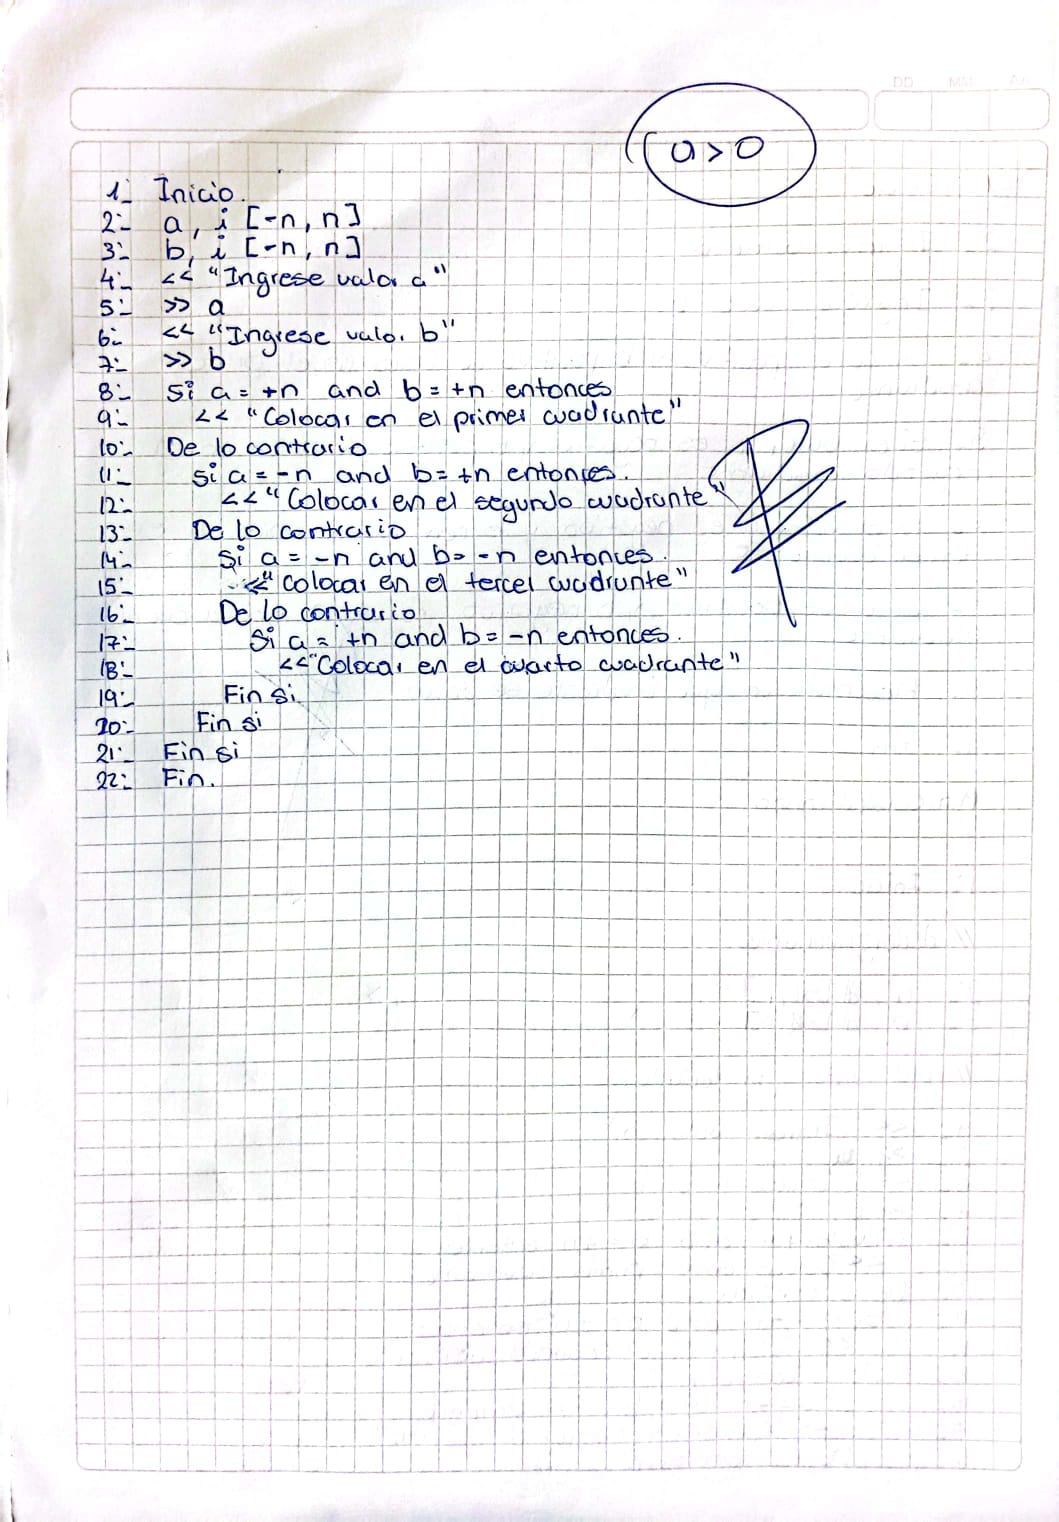 DD MM AA
a > 0
1- Inicio.
2- a, i [-n, n]
3- b, i [-n, n]
4- << "Ingrese valor a"
5- >> a
6- << "Ingrese valor b"
7- >> b
8- Si a = +n and b = +n entonces
9- << "Colocar en el primer cuadrante"
10- De lo contrario
11- Si a = -n and b = +n entonces.
12- << "Colocar en el segundo cuadrante"
13- De lo contrario
14- Si a = -n and b = -n entonces.
15- << "Colocar en el tercer cuadrante"
16- De lo contrario
17- Si a = +n and b = -n entonces.
18- << "Colocar en el cuarto cuadrante"
19- Fin si
20- Fin si
21- Fin si
22- Fin.